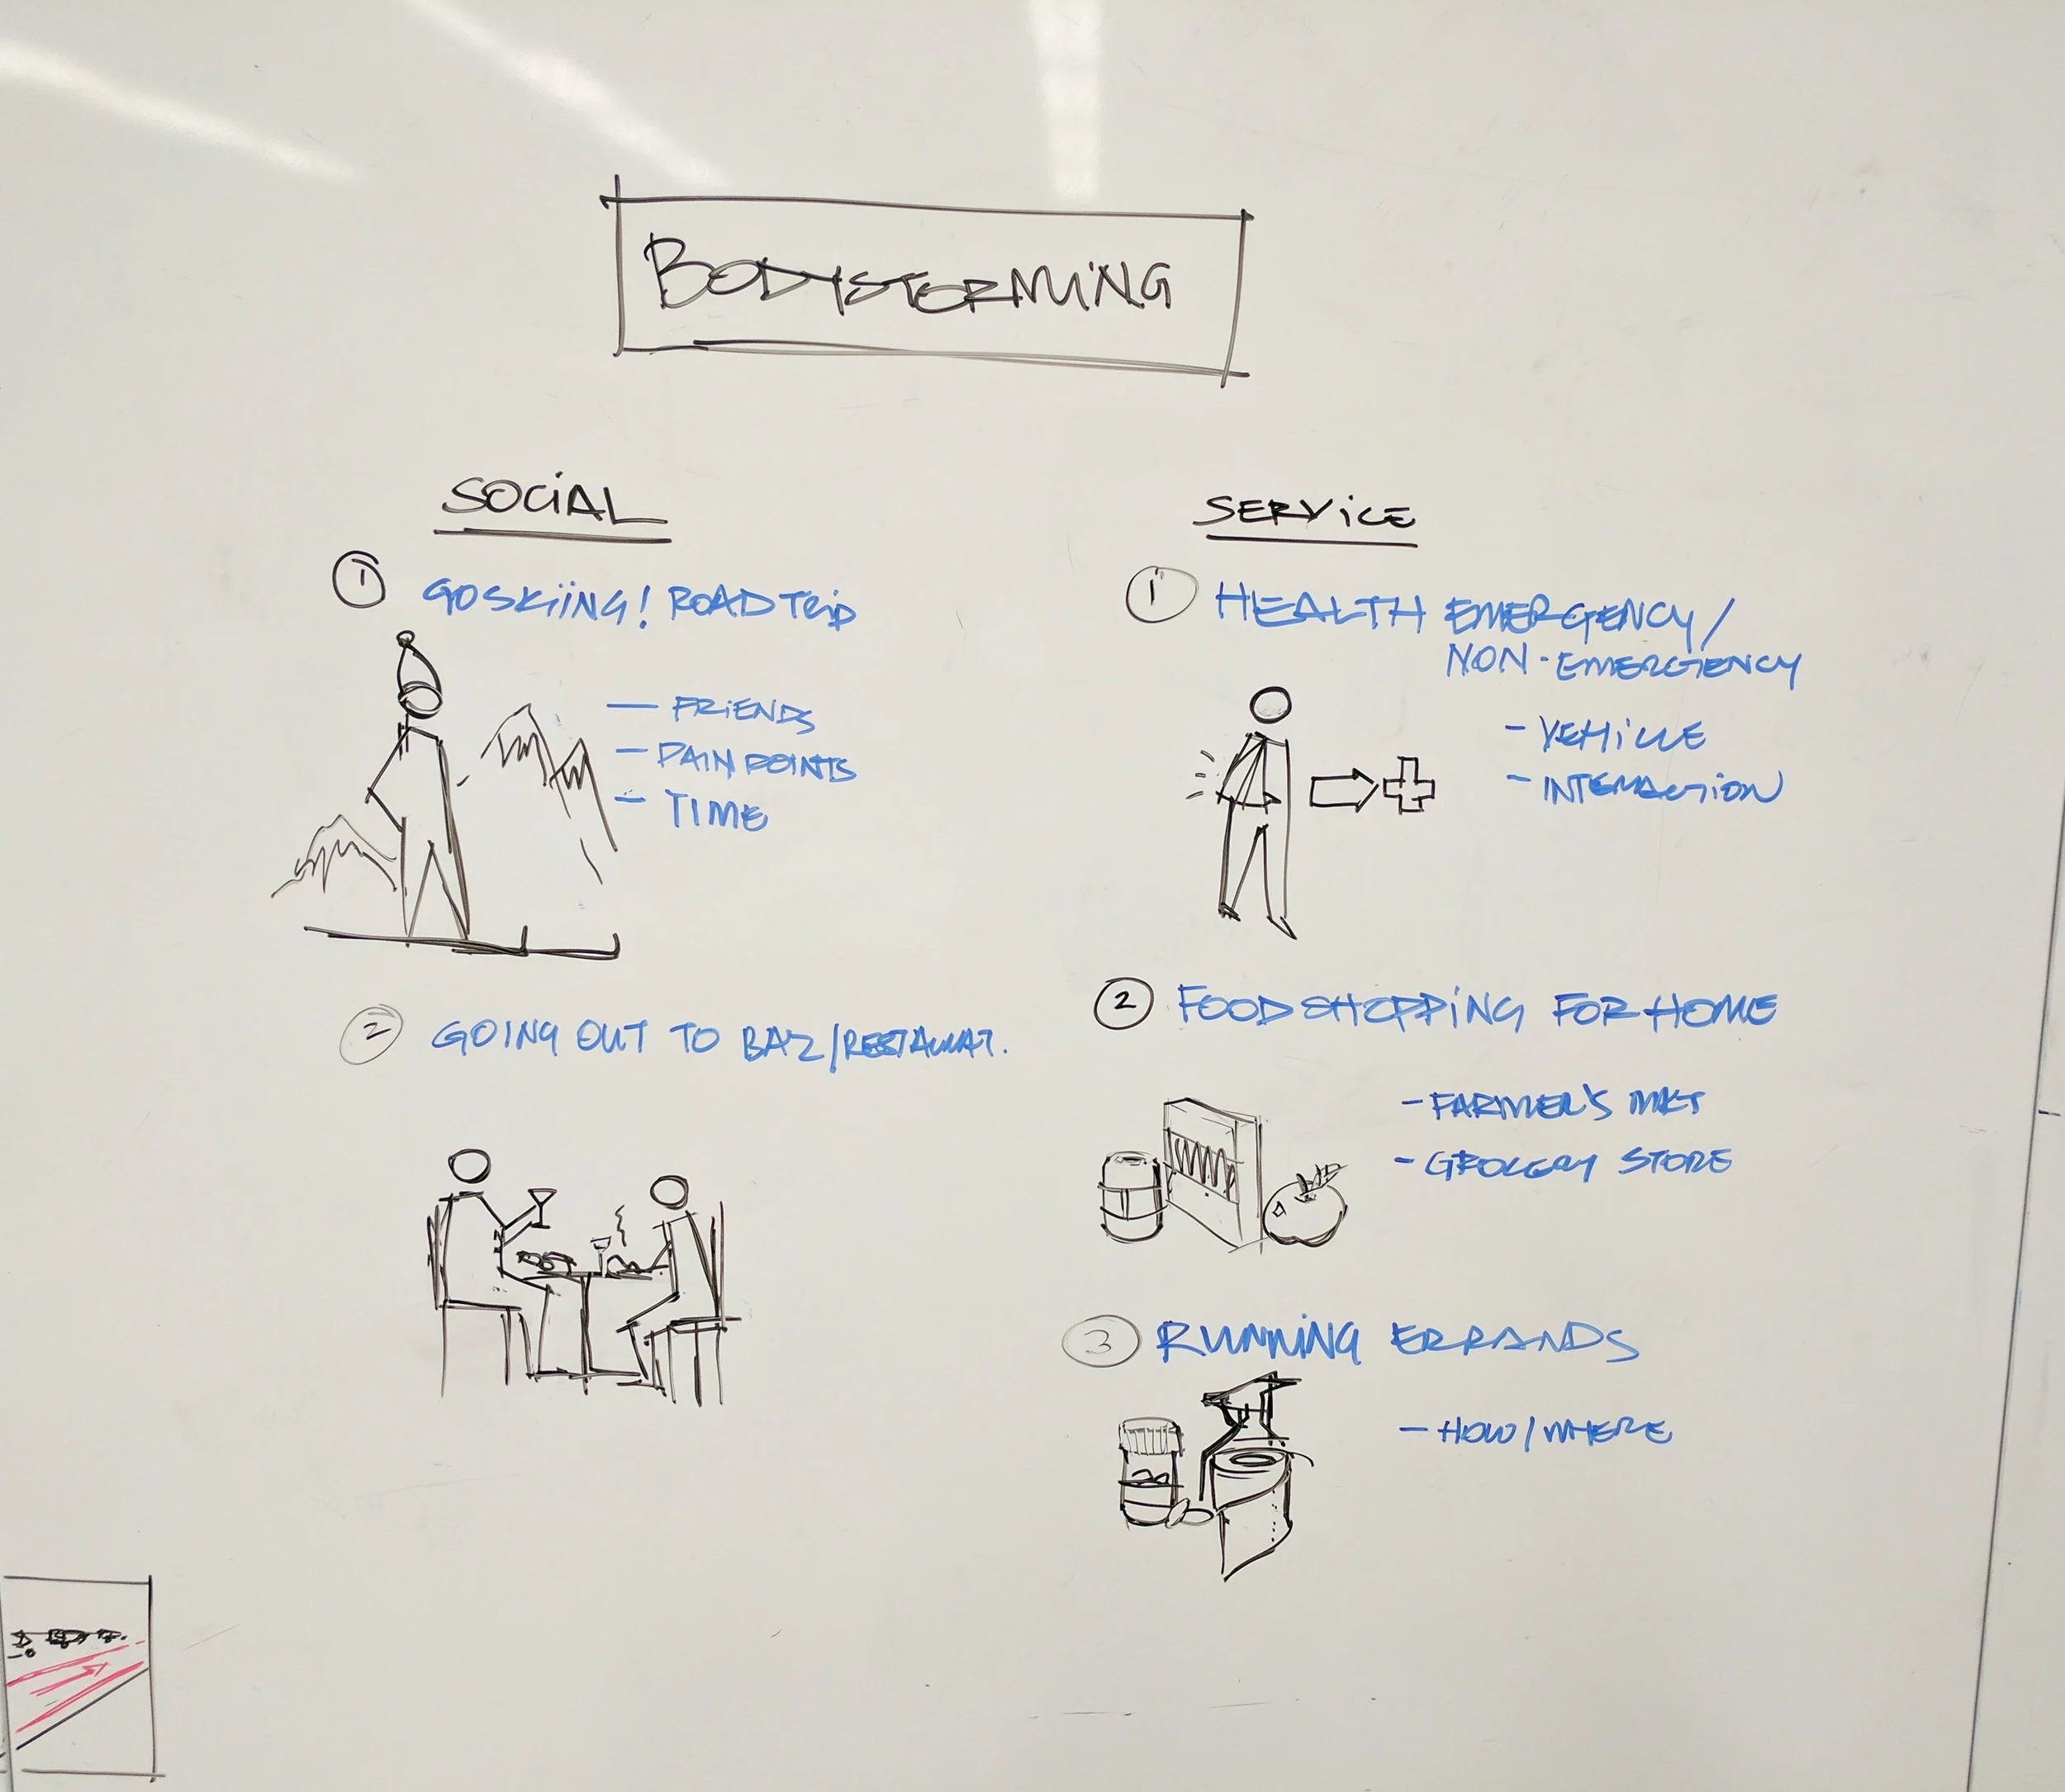 BODYSTORMING
SOCiAL
1 GO SKiiNG! ROAD TRiP
— FRiENDS
— PAIN POINTS
- TIME
2 GOING OUT TO BAR/RESTAURAT.
SERViCE
1 HEALTH EMERGENCY/
NON-EMERGENCY
- VEHiCLE
- INTERACTiON
2 FOOD SHOPPiNG FOR HOME
- FARMER'S MKT
- GROCERY STORE
3 RUNNiNG ERRANDS
- HOW/WHERE